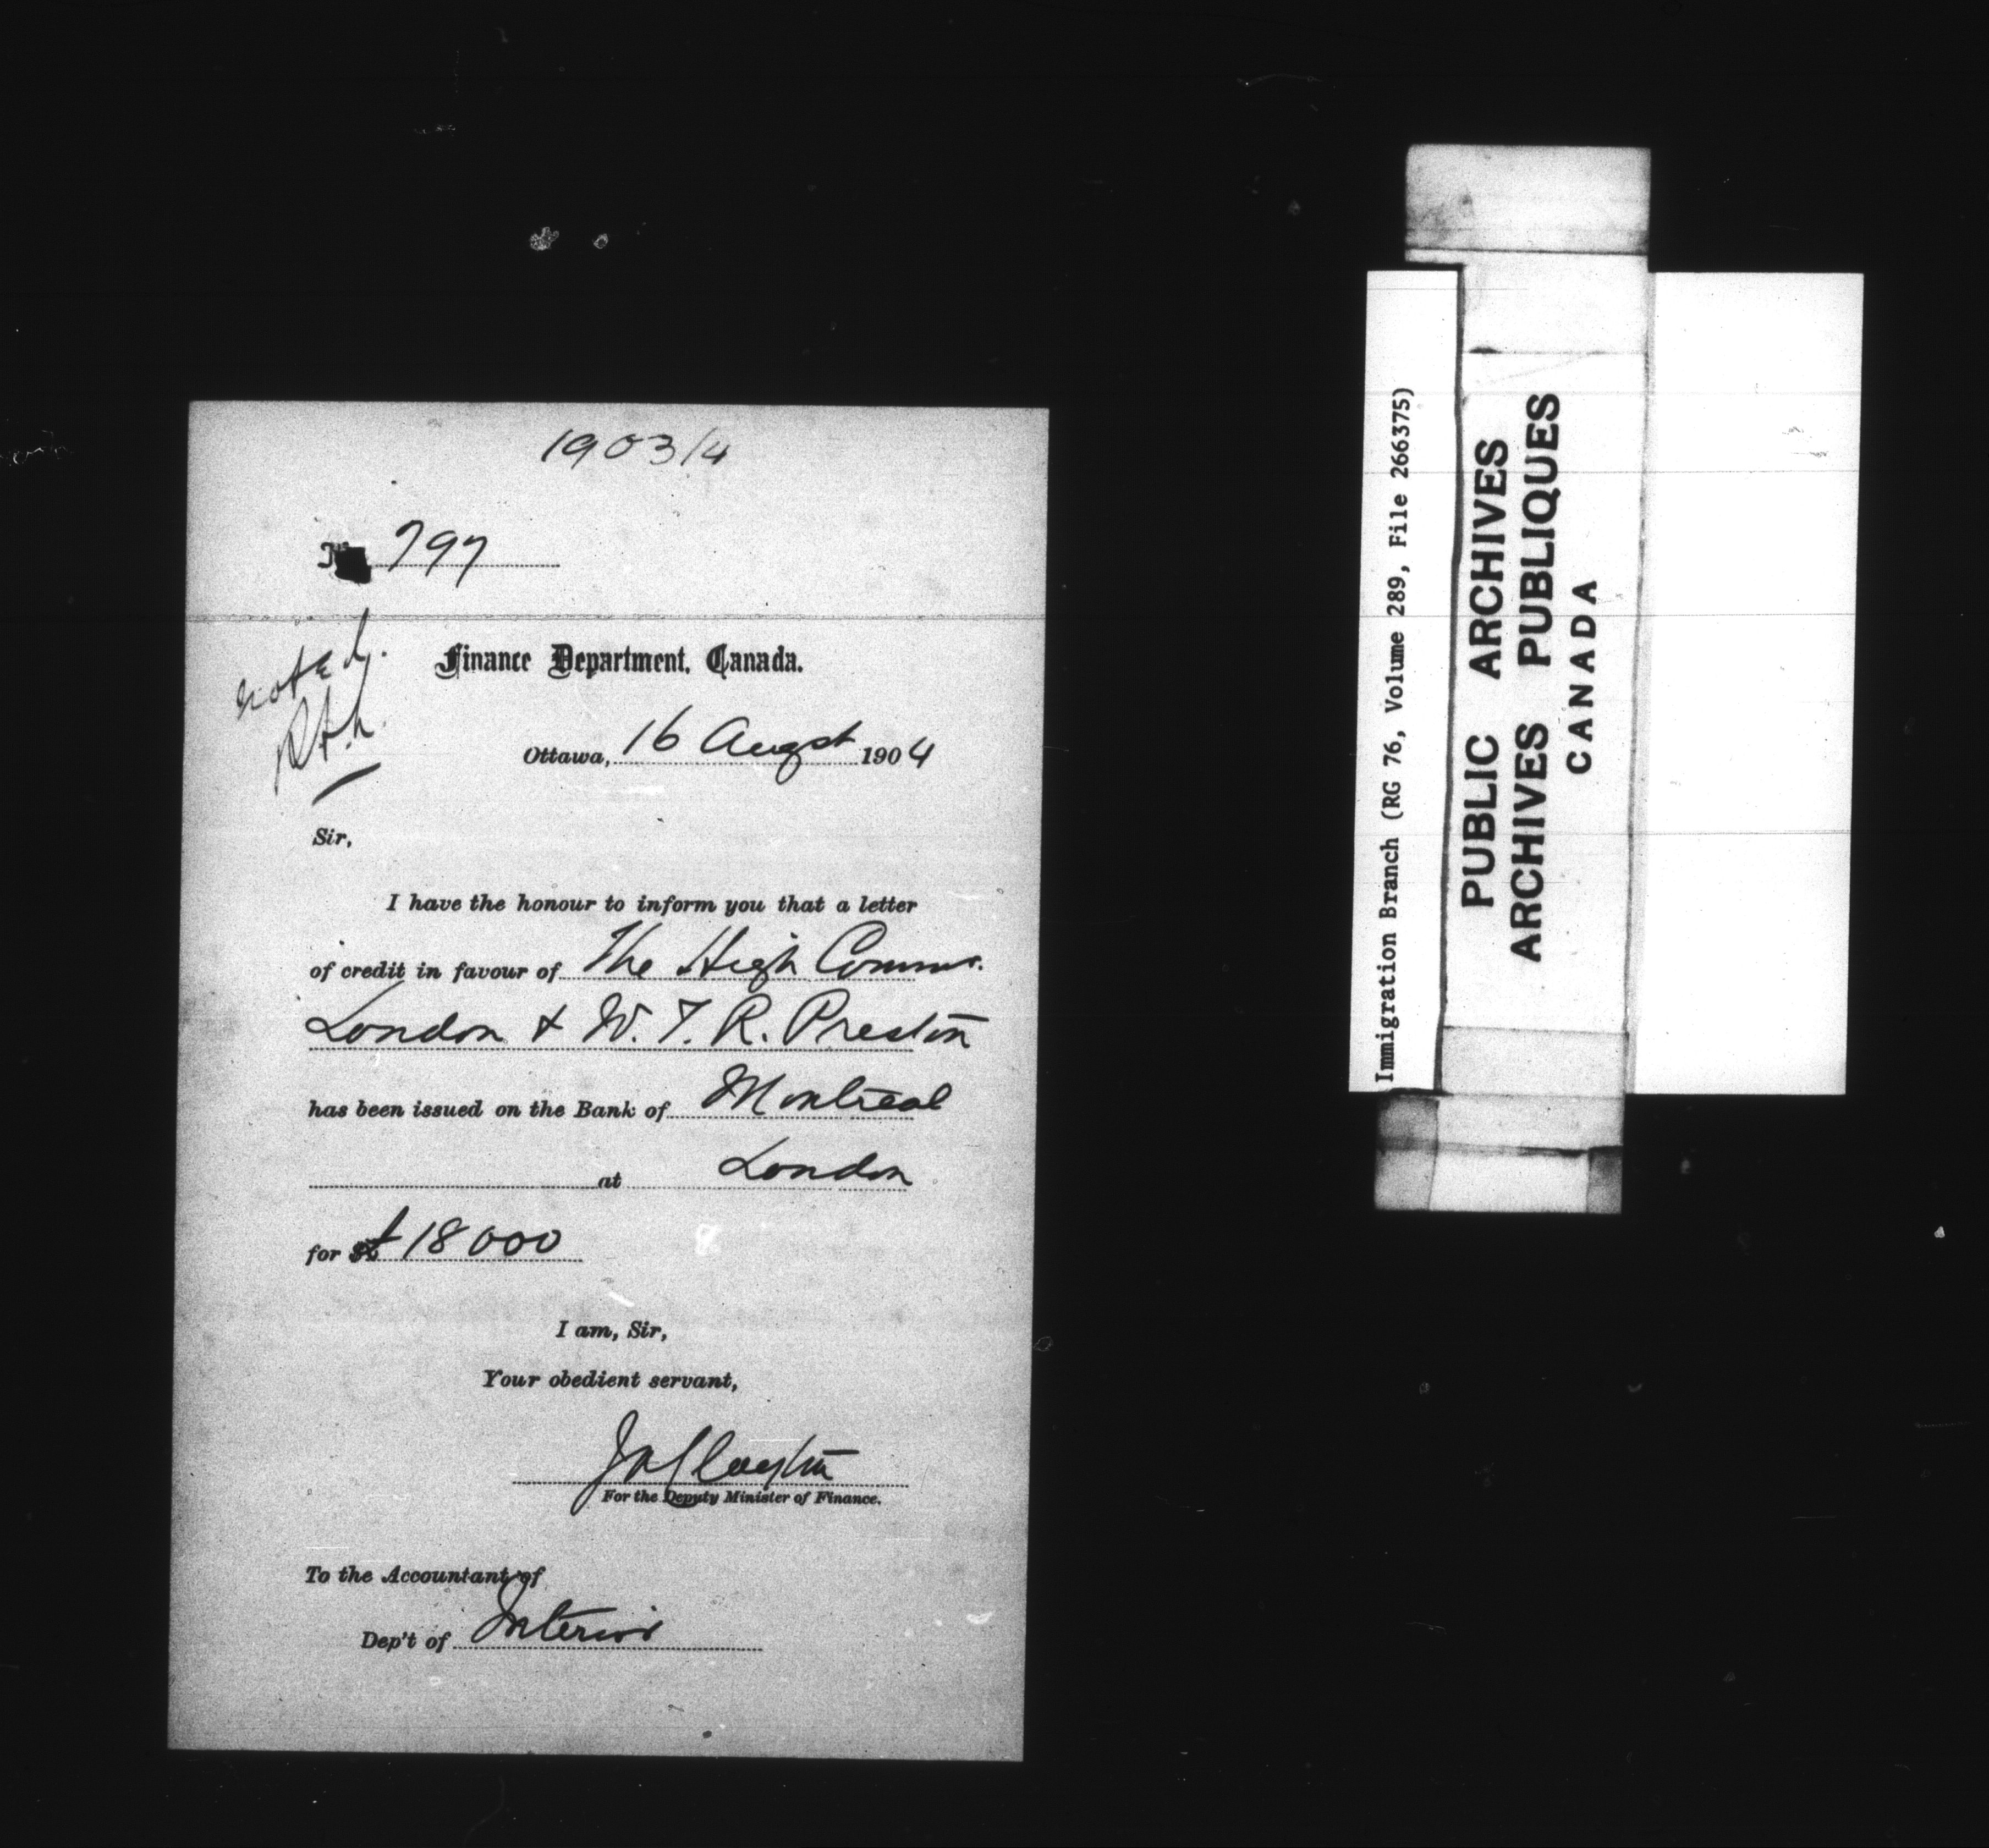 1903/4
No 797
noted.
Finance Department, Canada.
Ottawa, 16 Augst 1904
Sir,
I have the honour to inform you that a letter
of credit in favour of The High Commr.
London & W. T. R. Preston
has been issued on the Bank of Montreal
at London
for £ 18000
I am, Sir,
Your obedient servant,
For the Deputy Minister of Finance.
To the Accountant of
Dep't of Interior
Immigration Branch (RG 76, Volume 289, File 266375)
PUBLIC ARCHIVES
ARCHIVES PUBLIQUES
CANADA